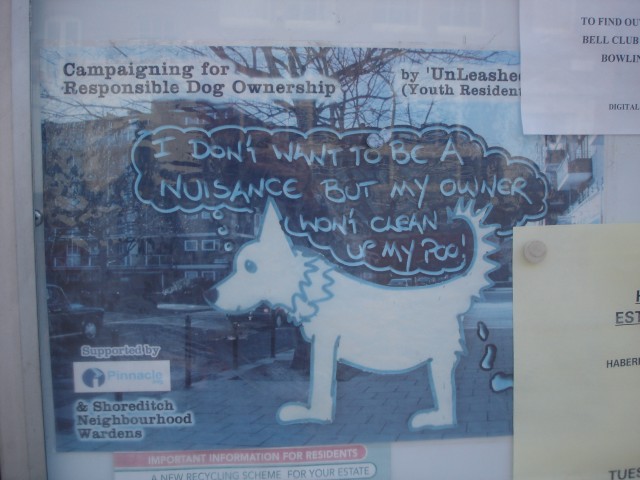 Campaigning for
Responsible Dog Ownership
by 'UnLeashe
(Youth Resident
I DON'T WANT TO BE A
NUISANCE BUT MY OWNER
WON'T CLEAN
UP MY POO!
Supported by
Pinnacle
& Shoreditch
Neighbourhood
Wardens
IMPORTANT INFORMATION FOR RESIDENTS
A NEW RECYCLING SCHEME FOR YOUR ESTATE
TO FIND OU
BELL CLUB
BOWLIN
DIGITAL
EST
HABER
TUES